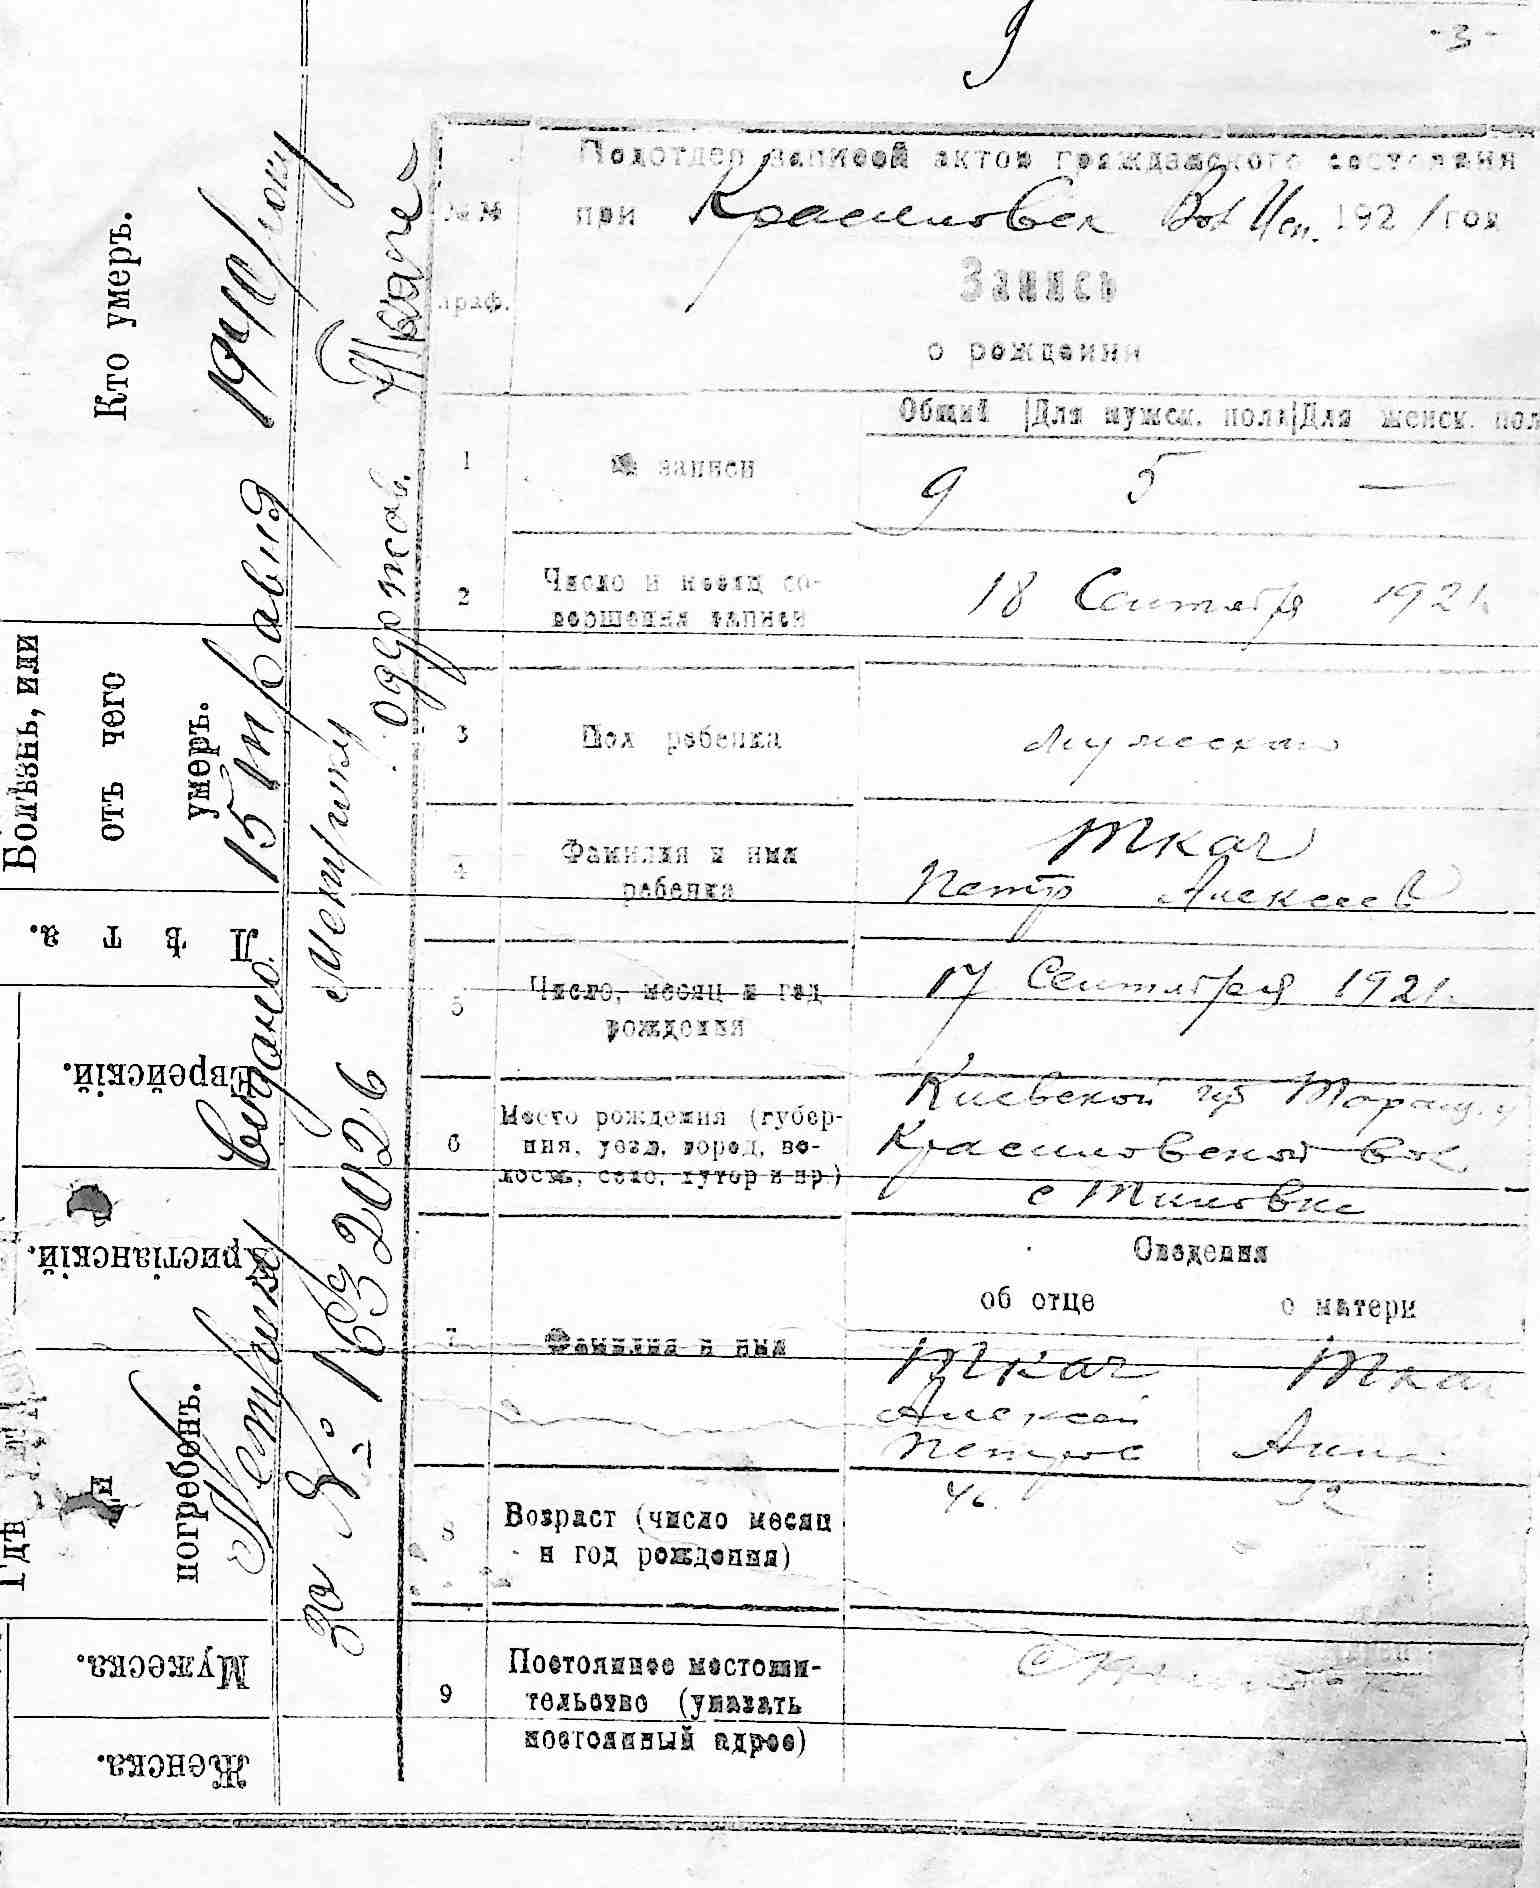 9
-3-
Подотдел записей актов гражданского состояния
№№ при Красиловск Вол Исп. 1921 год
граф.
Запись
о рождении
Общий Для мужск. пола Для женск. пол
1 № записи 9 5 —
2 Число и месяц со-
вершения записи 18 Сентября 1921.
3 Пол ребенка мужеского
4 Фамилия и имя
ребенка Ткач
Петр Алексеев
5 Число, месяц и год
рождения 17 Сентября 1921.
6 Место рождения (губер-
ния, уезд, город, во-
лость, село, хутор и пр) Киевской губ Таращ. у
Красиловской вол
с
Сведения
об отце о матери
7 Фамилия и имя Ткач Ткач
Алексей
Петров Анна
8 Возраст (число месяц
и год рождения) 32
9 Постоянное местожи-
тельство (указать
постоянный адрес) с
Кто умеръ.
Болѣзнь, или
отъ чего
умеръ.
Лѣта.
Еврейскій.
Христіанскій.
Гдѣ
и
погребенъ.
Мужеска.
Женска.
Метрику видано 15 травня 1940 року
за № 1632026 метрику
одержов. Ткач